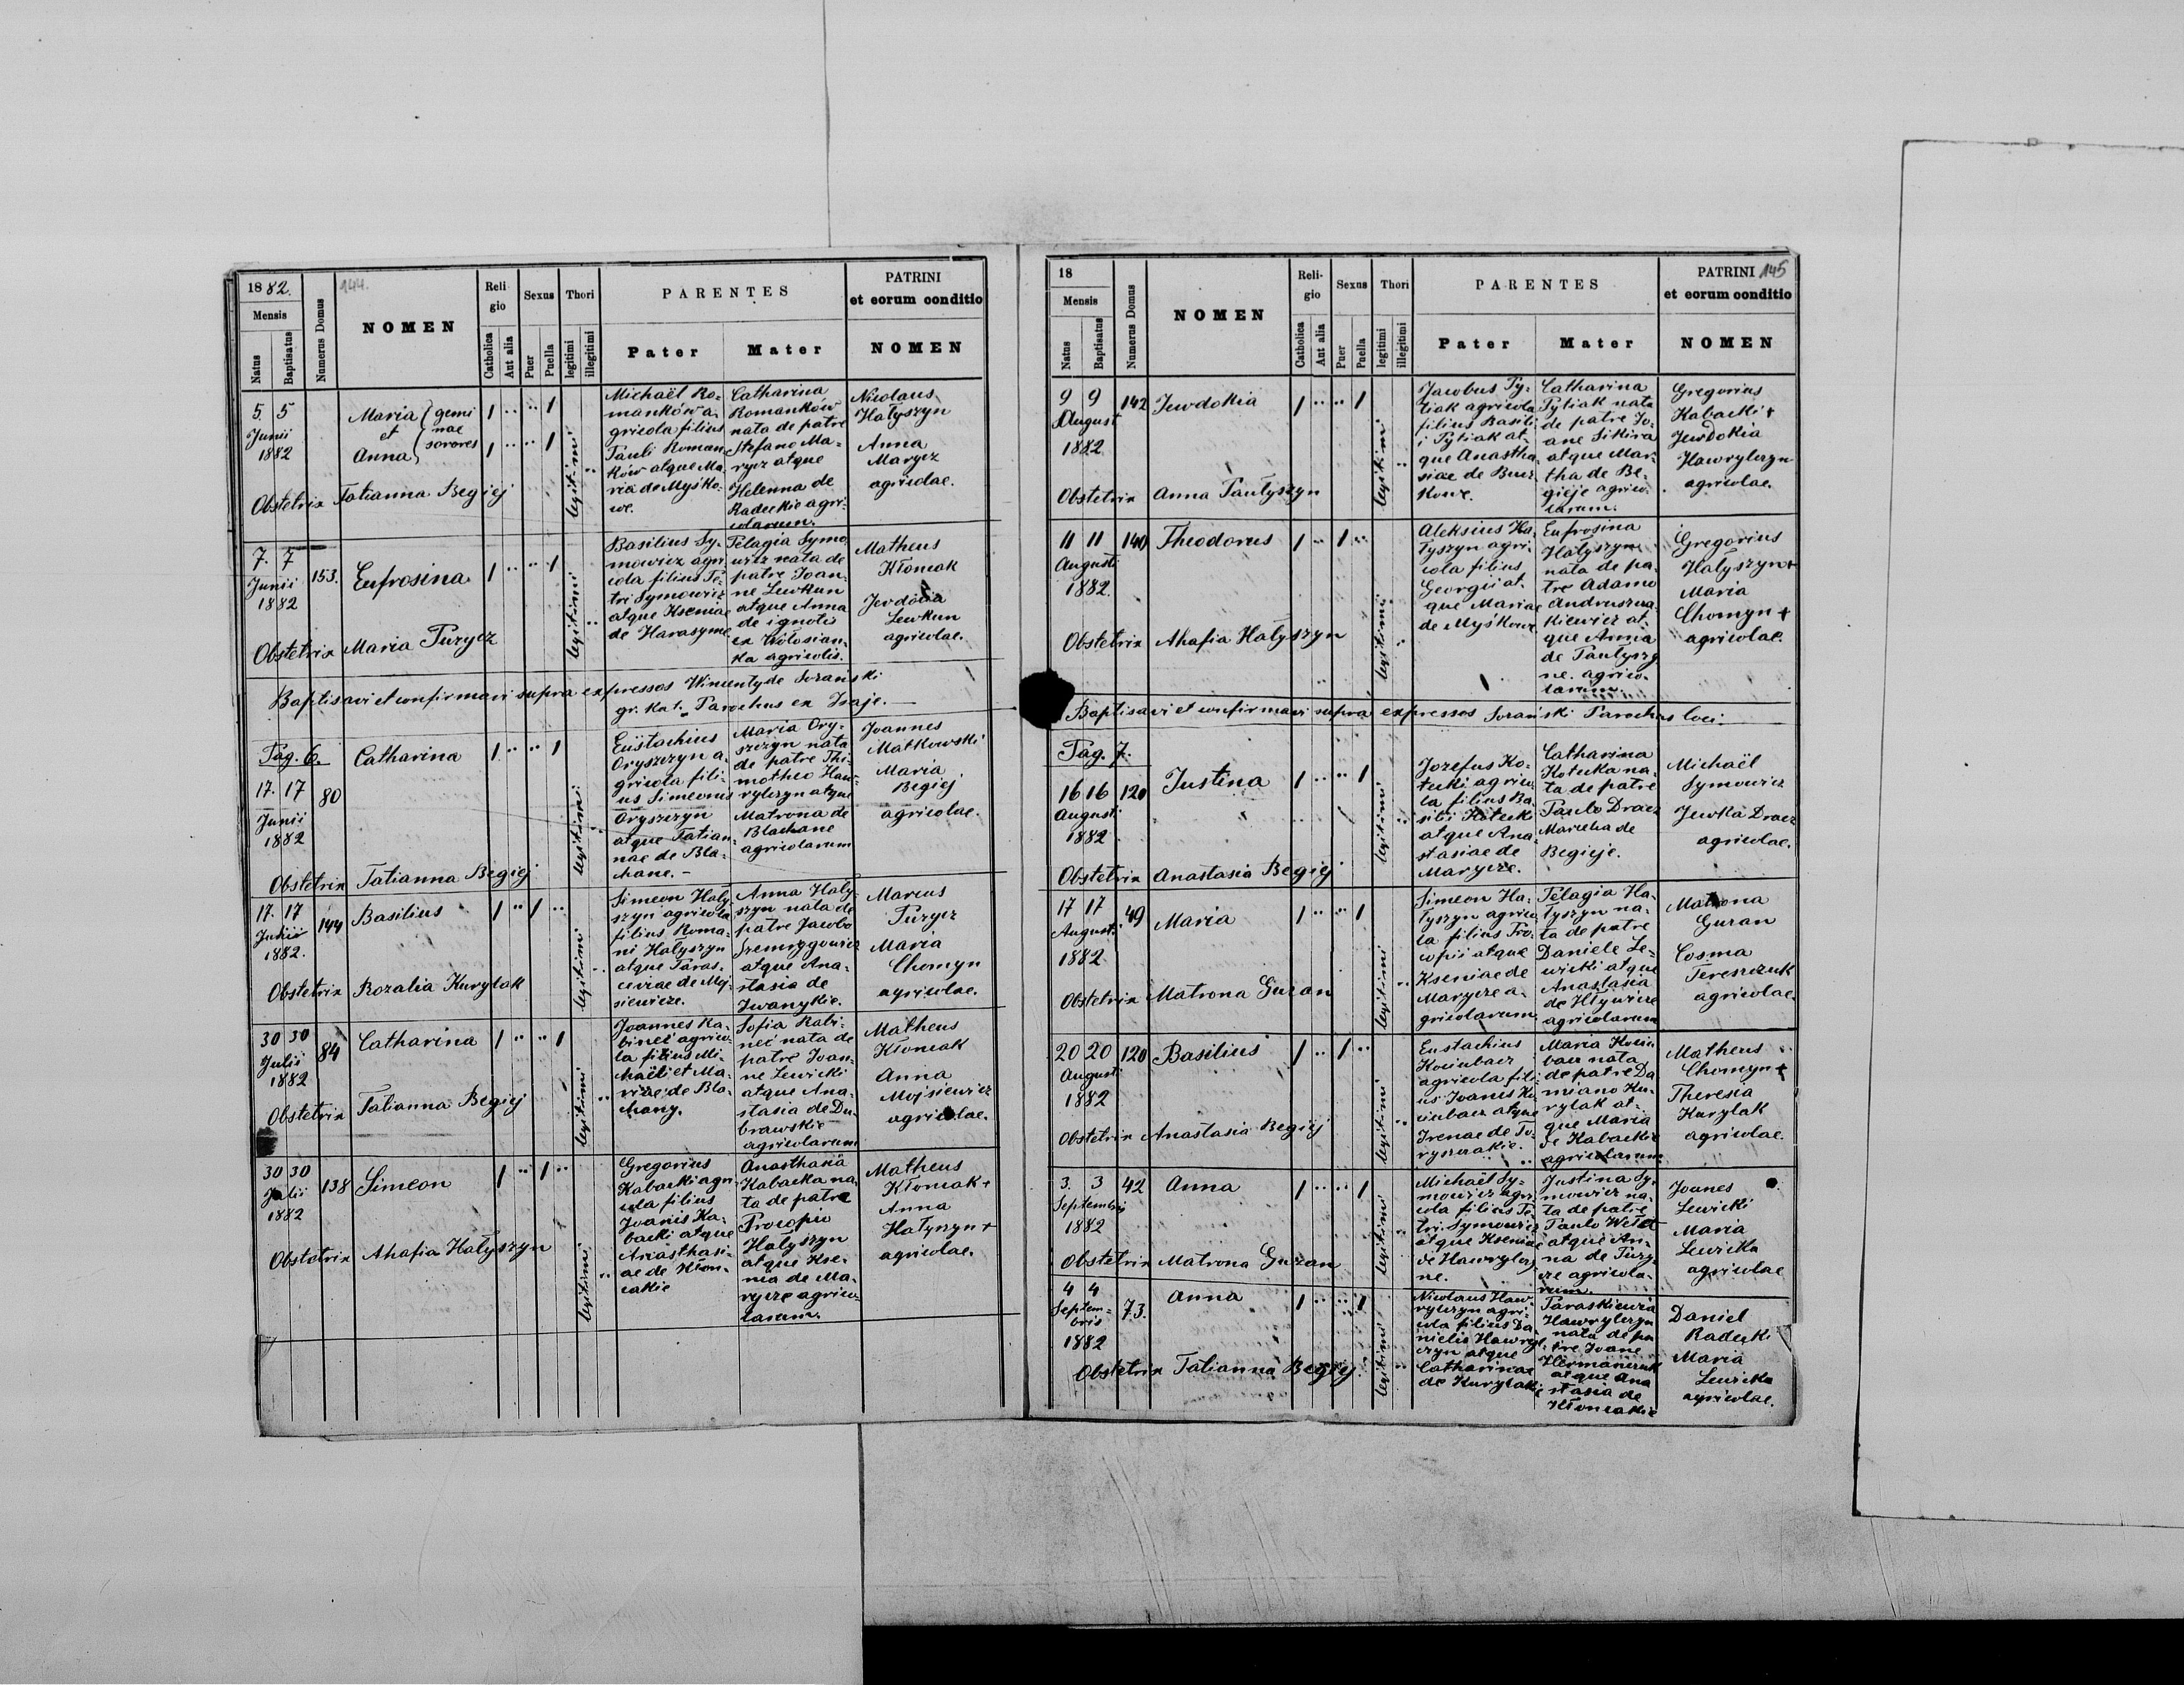 1882.
144.
Mensis
Natus
Baptisatus
Numerus Domus
NOMEN
Religio
Catholica
Aut alia
Sexus
Puer
Puella
Thori
legitimi
illegitimi
PARENTES
Pater
Mater
PATRINI
et eorum conditio
NOMEN
5. 5
Junii
1882
Maria
et
Anna
gemi
nae
sorores
1 .. .. 1
1 .. .. 1
legitimi
Michaël Ro-
manków a-
gricola filius
Pauli Roman
ków atque Ma-
ria de Myśko-
we.
Catharina
Romanków
nata de patre
Stefano Ma-
rycz atque
Helenna de
Radeckie agri-
colarum.
Nicolaus
Hałyszyn
Anna
Marycz
agricolae.
Obstetrix Tatianna Begiej
7. 7
Junii
1882
153.
Eufrosina
1 .. .. 1
legitimi
Basilius Sy-
mowicz agri
cola filius Pe-
tri Symowicz
atque Kseniae
de Harasyme
Pelagia Symo
wicz nata de
patre Joan-
ne Lewkun
atque Anna
de ignotis
ex Wołosian-
ka agricolis.
Matheus
Kłomak
Jevdokia
Lewkun
agricolae.
Obstetrix Maria Puzycz
Baptisavi et confirmavi supra expressos Wincenty de Sozański
gr. kat. Parochus ex Isaje.
Pag. 6.
17. 17
Junii
1882
80
Catharina
1 .. .. 1
legitimi
Eüstachius
Oryszczyn a-
gricola fili-
us Simeonis
Oryszczyn
atque Tatian-
nae de Bla-
chane. -
Maria Ory-
szczyn nata
de patre Thi-
motheo Haw-
rylczyn atque
Matrona de
Blachane
agricolarum
Joannes
Matkowski
Maria
Begiej
agricolae.
Obstetrix Tatianna Begiej
17. 17
1882.
144
Basilius
1 .. 1 ..
legitimi
Simeon Hały-
szyn agricola
filius Roma-
ni Hałyszyn
atque Paras-
ceviae de Moj-
siewicze.
Anna Hały-
szyn nata de
patre Jacobo
atque Ana-
stasia de
Iwanykie.
Marcus
Puzycz
Maria
Chomyn
agricolae.
Obstetrix Rozalia Kurylak
30 30
Julii
1882
84
Catharina
1 .. .. 1
legitimi
Joannes Ra-
bineć agrico-
la filius Mi-
chaëli et Ma-
riae de Bla-
chany.
Sofia Rabi-
neć nata de
patre Joan-
ne Lewicki
atque Ana-
stasia de Du-
brawskie
agricolarum
Matheus
Kłomak
Anna
Mojsiewicz
agricolae.
Obstetrix Tatianna Begiej
30 30
Julii
1882
138
Simeon
1 .. 1 ..
legitimi
Gregorius
Kabacki agri-
cola filius
Joanis Ka-
backi atque
Anasthasi-
ae de Kłom-
cakie
Anasthasia
Kabacka na-
ta de patre
Procopio
Hałyszyn
atque Kse-
nia de Ma-
rycze agrico-
larum.
Matheus
Kłomak +
Anna
Hałyszyn +
agricolae.
Obstetrix Ahafia Hałyszyn
18
145
Mensis
Natus
Baptisatus
Numerus Domus
NOMEN
Religio
Catholica
Aut alia
Sexus
Puer
Puella
Thori
legitimi
illegitimi
PARENTES
Pater
Mater
PATRINI
et eorum conditio
NOMEN
9 9
August
1882
142
Jewdokia
1 .. .. 1
legitimi
Jacobus Py-
tiak agricola
filius Basili
i Pytiak at-
que Anastha
siae de Bucz-
kowe.
Catharina
Pytiak nata
de patre Jo-
ane Sikira
atque Mar-
tha de Be-
gieje agrico-
larum.
Gregorius
Kabacki +
Jewdokia
Hawrylczyn
agricolae.
Obstetrix Anna Paułyszyn
11 11
Augusti
1882.
140
Theodorus
1 .. 1 ..
legitimi
Aleksius Ha-
łyszyn agri-
cola filius
Georgii at-
que Mariae
de Myśkowe
Eufrosina
Hałyszyn
nata de pa-
tre Adamo
Andruszcza-
kiewicz at-
que Anna
de Paułyszy
ne. agrico-
larum.
Gregorius
Hałyszyn +
Maria
Chomyn +
agricolae.
Obstetrix Ahafia Hałyszyn
Baptisavi et confirmavi supra expressos Sozański Parochus loci.
Pag. 7.
16 16
Augusti
1882
120
Justina
1 .. .. 1
legitimi
Jozefus Ko-
tecki agrico-
la filius Ba-
silii Koteck
atque Ana-
stasiae de
Marycze.
Catharina
Kotecka na-
ta de patre
Paulo Dracz
Marcelia de
Begieje.
Michaël
Symowicz
Jewka Dracz
agricolae.
Obstetrix Anastasia Begiej
17 17
Augusti
1882
49
Maria
1 .. .. 1
legitimi
Simeon Ha-
łyszyn agrico-
la filius Pro-
copii atque
Kseniae de
Marycze a-
gricolarum
Pelagia Ha-
łyszyn na-
ta de patre
Daniele Le-
wicki atque
Anastasia
de Iływicze
agricolarum
Matrona
Guran
Cosma
Tereszczuk
agricolae.
Obstetrix Matrona Guran
20 20
Augusti
1882
120
Basilius
1 .. 1 ..
legitimi
Eustachius
Kocubacz
agricola fili-
us Joanis Ko
cubacz atque
Irenae de To-
ryszczakie.
Maria Kocu
bacz nata
de patre Da
miano Ku-
rylak at-
que Maria
de Kabackie
agricolarum
Matheus
Chomyn +
Theresia
Kurylak
agricolae.
Obstetrix Anastasia Begiej
3. 3
Septembris
1882
42
Anna
1 .. .. 1
legitimi
Michaël Sy-
mowicz agri-
cola filius Pe-
tri Symowicz
atque Kseniae
de Hawrylczy
ne.
Justina Sy-
mowicz na-
ta de patre
Paulo
atque An-
na de Puzy-
cze agricola-
rum.
Joanes
Lewicki
Maria
Lewicka
agricolae
Obstetrix Matrona Guran
4 4
Septem-
bris
1882
73.
Anna
1 .. .. 1
legitimi
Nicolaus Haw-
rylczyn agri-
cola filius Da-
nielis Hawryl-
czyn atque
Catharinae
de Kurylakie
Paraskiewia
Hawrylczyn
nata de pa
tre Joane
Hermanczuk
atque Ana
stasia de
Kłomcakie
Daniel
Radecki
Maria
Lewicka
agricolae.
Obstetrix Tatianna Begiej